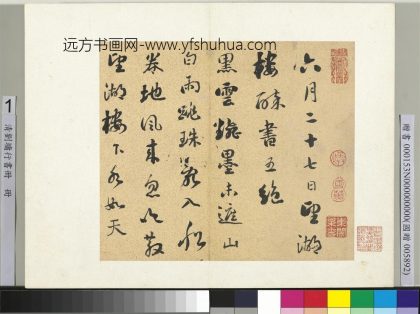 远方书画网-www.yfshuhua.com
六月二十七日望湖
樓醉書五絕
黑雲翻墨未遮山
白雨跳珠亂入船
卷地風來忽吹散
望湖樓下水如天
1
清劉墉行書冊 冊
005892)